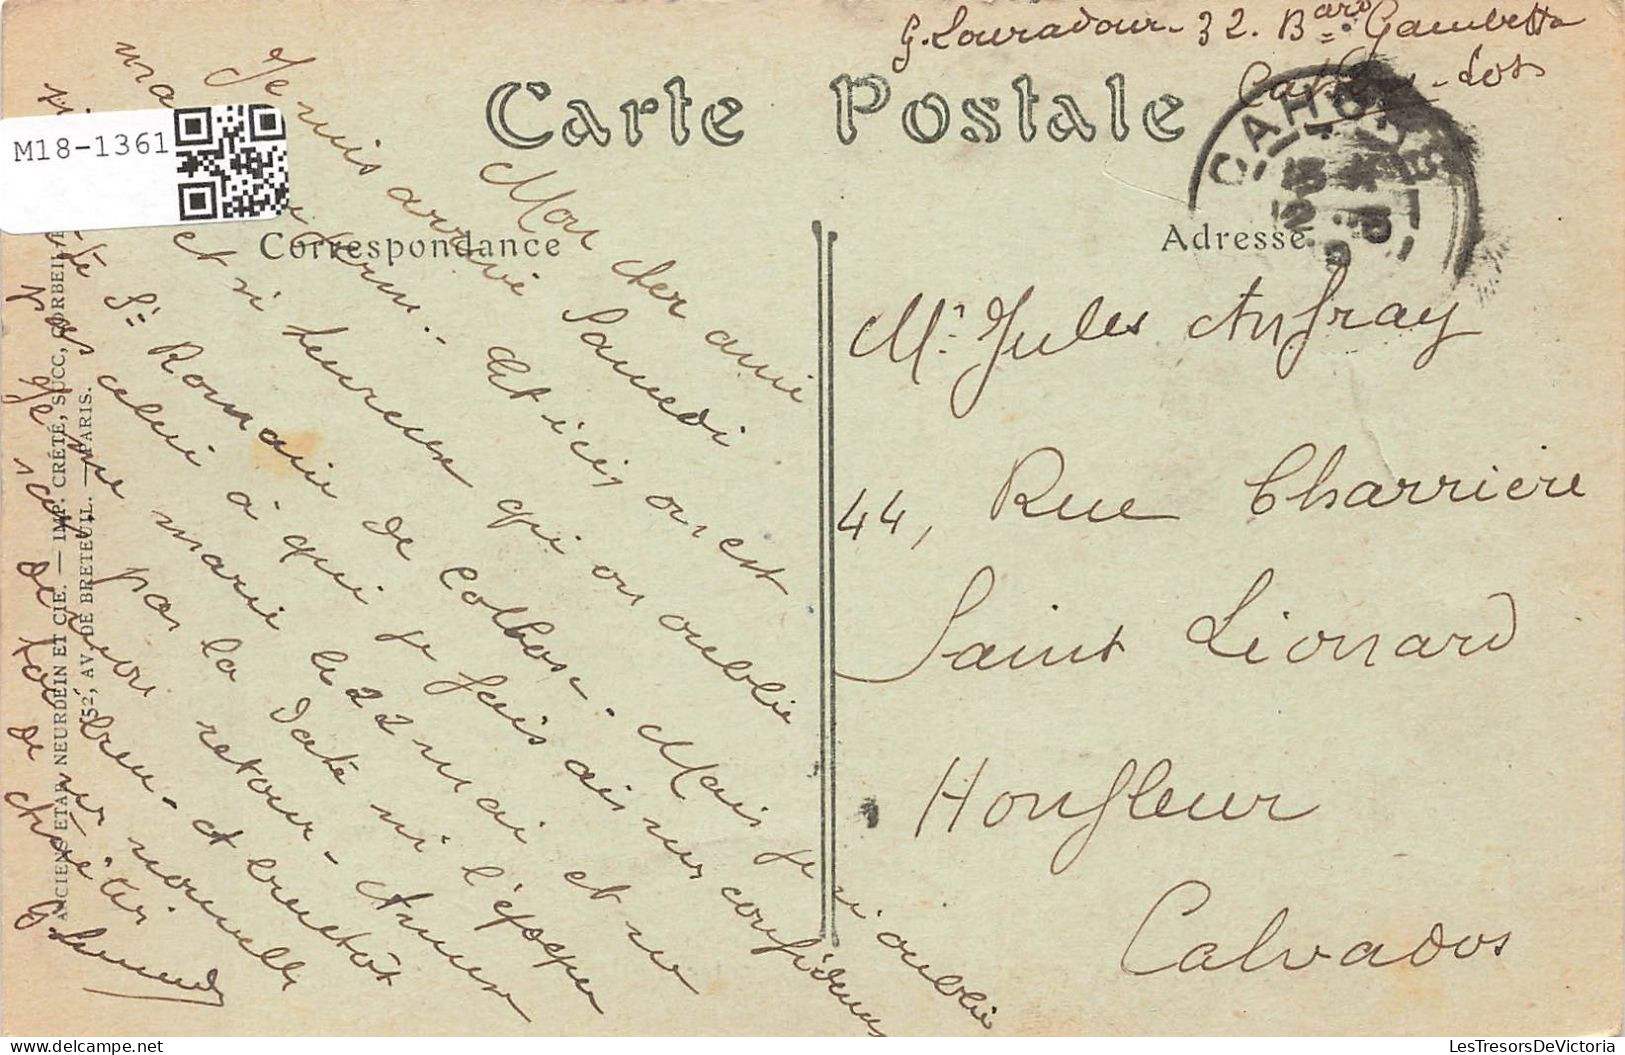 G. Louradour - 32. Bard Gambetta
Cahors - Lot
Carte Postale
M18-1361
Correspondance
Adresse
CAHORS
Mon cher ami
Je suis arrivé Samedi
matin . Et ici on est
et si heureux qu'on oublie
St Romain de Colbosc. Mais je n'oublie
pas celui à qui je fais ses confidences
Je me marie le 22 mai et ne
sais pas la date ni l'époque
de mon retour - Amuse
toi bien - et bientôt
de nouvelles
G Louradour
Mr. Jules Anfray
44, Rue Charrière
Saint Léonard
Honfleur
Calvados
ANCIENS ETAB. NEURDEIN ET CIE. — IMP. CRÉTÉ, SUCC, CORBEIL
52, AV. DE BRETEUIL. — PARIS.
LesTresorsDeVictoria